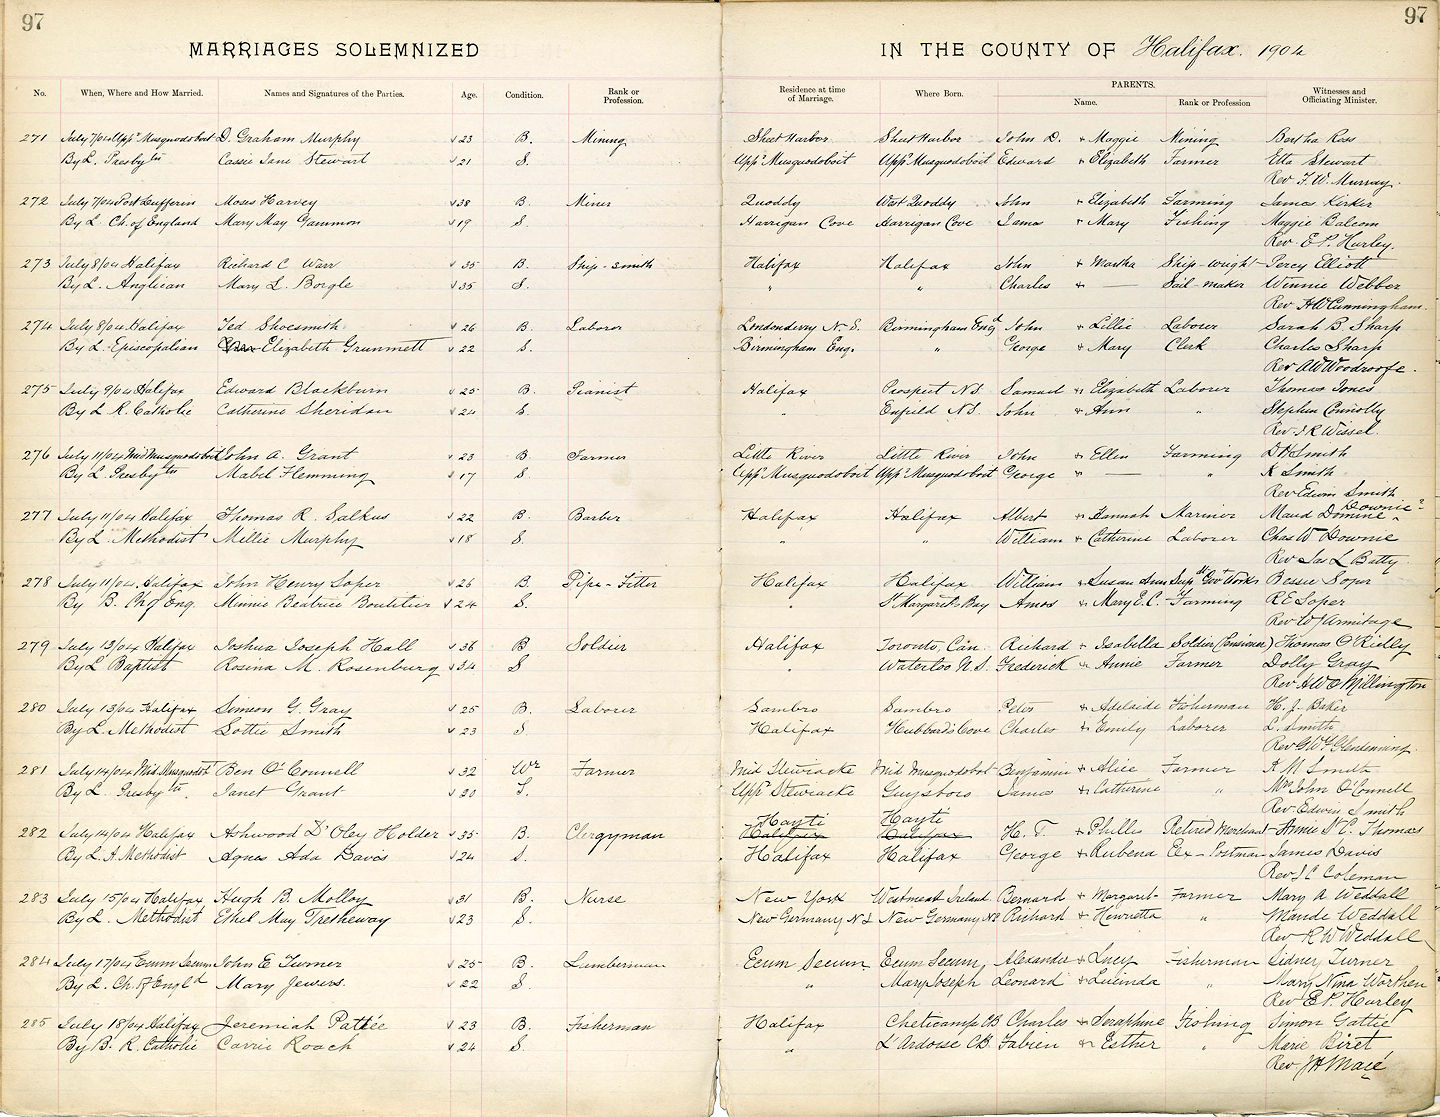 97
97
MARRIAGES SOLEMNIZED IN THE COUNTY OF Halifax. 1904
PARENTS.
No. When, Where and How Married. Names and Signatures of the Parties. Age. Condition. Rank or Profession. Residence at time of Marriage. Where Born. Name. Rank or Profession Witnesses and Officiating Minister.
271 July 7/04 Uppr Musquodoboit D. Graham Murphy 23 B. Mining Sheet Harbor Sheet Harbor John D. + Maggie Mining Bertha Ross
By L. Presbytn Cassie Jane Stewart 21 S. Uppr Musquodoboit Uppr Musquodoboit Edward + Elizabeth Farmer Etta Stewart
Rev F. W. Murray.
272 July 7/04 Port Dufferin Moses Harvey 38 B. Miner Quoddy West Quoddy John + Elizabeth Farming James Kirker
By L. Ch. of England Mary May Gammon 19 S. Harrigan Cove Harrigan Cove + Mary Fishing Maggie Balcom
Rev. E. P. Hurley.
273 July 8/04 Halifax Richard C Warr 35 B. Ship-smith Halifax Halifax John + Martha Ship-wright Percy Elliott
By L. Anglican Mary L. Borgle 35 S. " " Charles + — Sail maker Winnie Webber
Rev H W Cunningham.
274 July 8/04 Halifax Ted Shoesmith 26 B. Laborer Londonderry N.S. Birmingham Engd John + Lillie Laborer Sarah B Sharp
By L. Episcopalian Elizabeth Grummett 22 S. Birmingham Eng. " George + Mary Clerk Charles Sharp
Rev A W Woodroofe.
275 July 9/04 Halifax Edward Blackburn 25 B. Pianist Halifax Prospect N.S. Samuel + Elizabeth Laborer Thomas Jones
By L R. Catholic Catherine Sheridan 24 S. " Enfield N.S. John + Ann " Stephen Connolly
Rev. J. R Wissel.
276 July 11/04 Mid Musquodoboit John A. Grant 23 B. Farmer Little River Little River John + Ellen Farming D H Smith
By L. Presbytn Mabel Flemming 17 S. Uppr Musquodoboit Uppr Musquodoboit George " — " K Smith
Rev Edwin Smith
277 July 11/04 Halifax Thomas R. Salkus 22 B. Barber Halifax Halifax Albert + Hannah Mariner Maud Domine Downie?
By L. Methodist Millie Murphy 18 S. " " William + Catherine Laborer Chas W Downie
Rev Jas L Batty.
278 July 11/04 Halifax John Henry Soper 26 B. Pipe-Fitter Halifax Halifax William + Susan Ann Supt Govt Works Bessie Soper
By B. Ch of Eng. Minnie Beatrice Boutilier 24 S. " St Margarets Bay Amos + Mary E. C. Farming R E Soper
Rev W J Armitage
279 July 13/04 Halifax Joshua Joseph Hall 36 B. Soldier Halifax Toronto, Can. Richard + Isabella Soldier (Pensioner) Thomas O'Rielly
By L Baptist Rosina M. Rosenburg 34 S " Waterloo N.S. Frederick + Annie Farmer Dolly Gray
Rev A W O Millington
280 July 13/04 Halifax Simeon G. Gray 25 B. Laborer Sambro Sambro Peter + Adelaide Fisherman H. J. Baker
By L. Methodist Lottie Smith 23 S Halifax Hubbard's Cove Charles + Emily Laborer L. Smith
Rev G Wm Glendenning.
281 July 14/04 Mid. Musquodt Ben O'Connell 32 Wr Farmer Mid Stewiacke Mid Musquodoboit Benjamin + Alice Farmer K M Smith
By L. Presbytn. Janet Grant 30 S. Uppr Stewiacke Guysboro James + Catherine " Mrs John O'Connell
Rev Edwin Smith
Hayti Hayti
282 July 14/04 Halifax Ashwood D'Oley Holder 35 B. Clergyman Halifax Halifax H. T. + Phillis Retired Merchant Annie N C. Thomas
By L. A. Methodist Agnes Ada Davis 24 S. Halifax Halifax George + Rubena Ex-Postman James Davis
Rev J. C Coleman
283 July 15/04 Halifax Hugh B. Molloy 31 B. Nurse New York Westmeath Ireland Bernard + Margaret Farmer Mary A Weddall
By L. Methodist Ethel May Tretheway 23 S. New Germany N S New Germany N S Richard + Henrietta " Maude Weddall
Rev R W Weddall
284 July 17/04 Ecum Secum John E Turner 25 B. Lumberman Ecum Secum Ecum Secum Alexander + Lucy Fisherman Sidney Turner
By L. Ch. of Engld Mary Jewers. 22 S. " Mary Joseph Leonard + Lucinda " Mary Nina Worthen
Rev E. P. Hurley
285 July 18/04 Halifax Jeremiah Pattée 23 B. Fisherman Halifax Cheticamp CB Charles + Seraphine Fishing Simon Gattie
By B. R. Catholic Carrie Roach 24 S. " L'Ardoise CB. Fabien + Esther " Marie Biret
Rev J H Macé